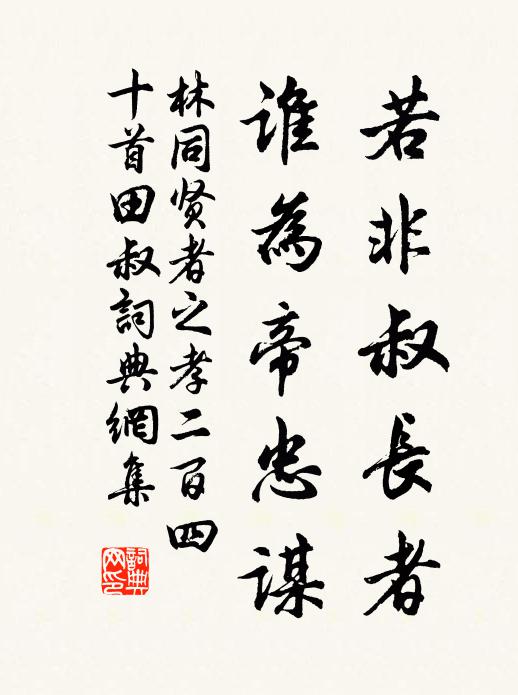 若非叔長者
誰為帝忠謀
林同贤者之孝二百四
十首田叔詞典網集
詞典网印